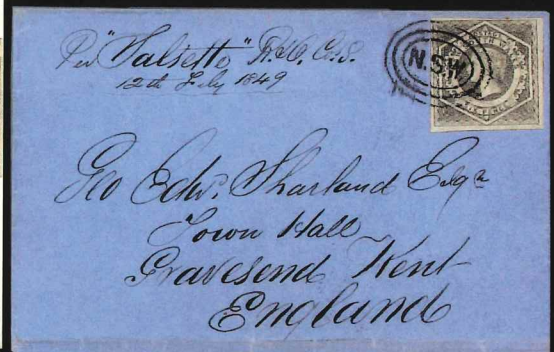 Per "Salsette"
12th
N.S.W
Geo Edwd. Sharland Esqre
Town Hall
Gravesend Kent
England